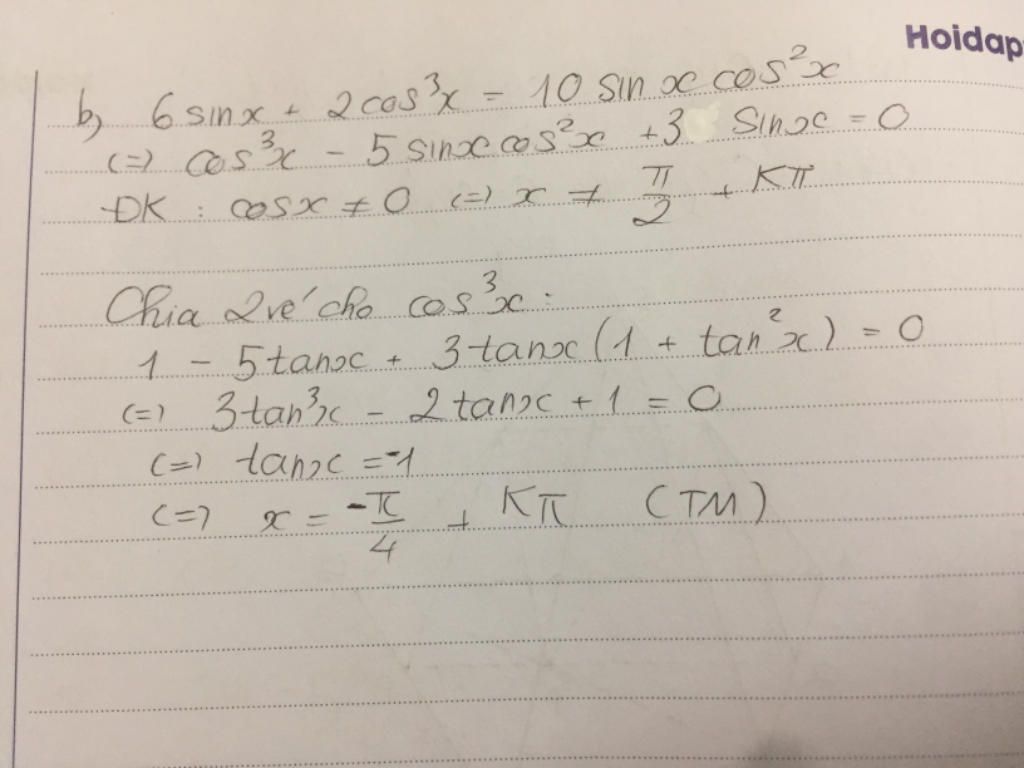 Hoidap
b, 6 sinx + 2cos³x = 10 sin x cos²x
(=) cos³x - 5 sinx cos²x + 3 sinx = 0
ĐK : cosx ≠ 0 (=) x ≠ π/2 + Kπ
Chia 2 vế cho cos³x :
1 - 5tanx + 3tanx (1 + tan²x) = 0
(=) 3tan³x - 2tanx + 1 = 0
(=) tanx = -1
(=) x = -π/4 + Kπ (TM)